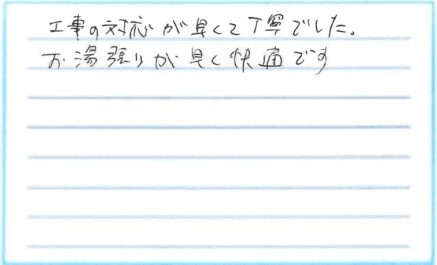 工事の対応が早くて丁寧でした。
お湯張りが早く快適です